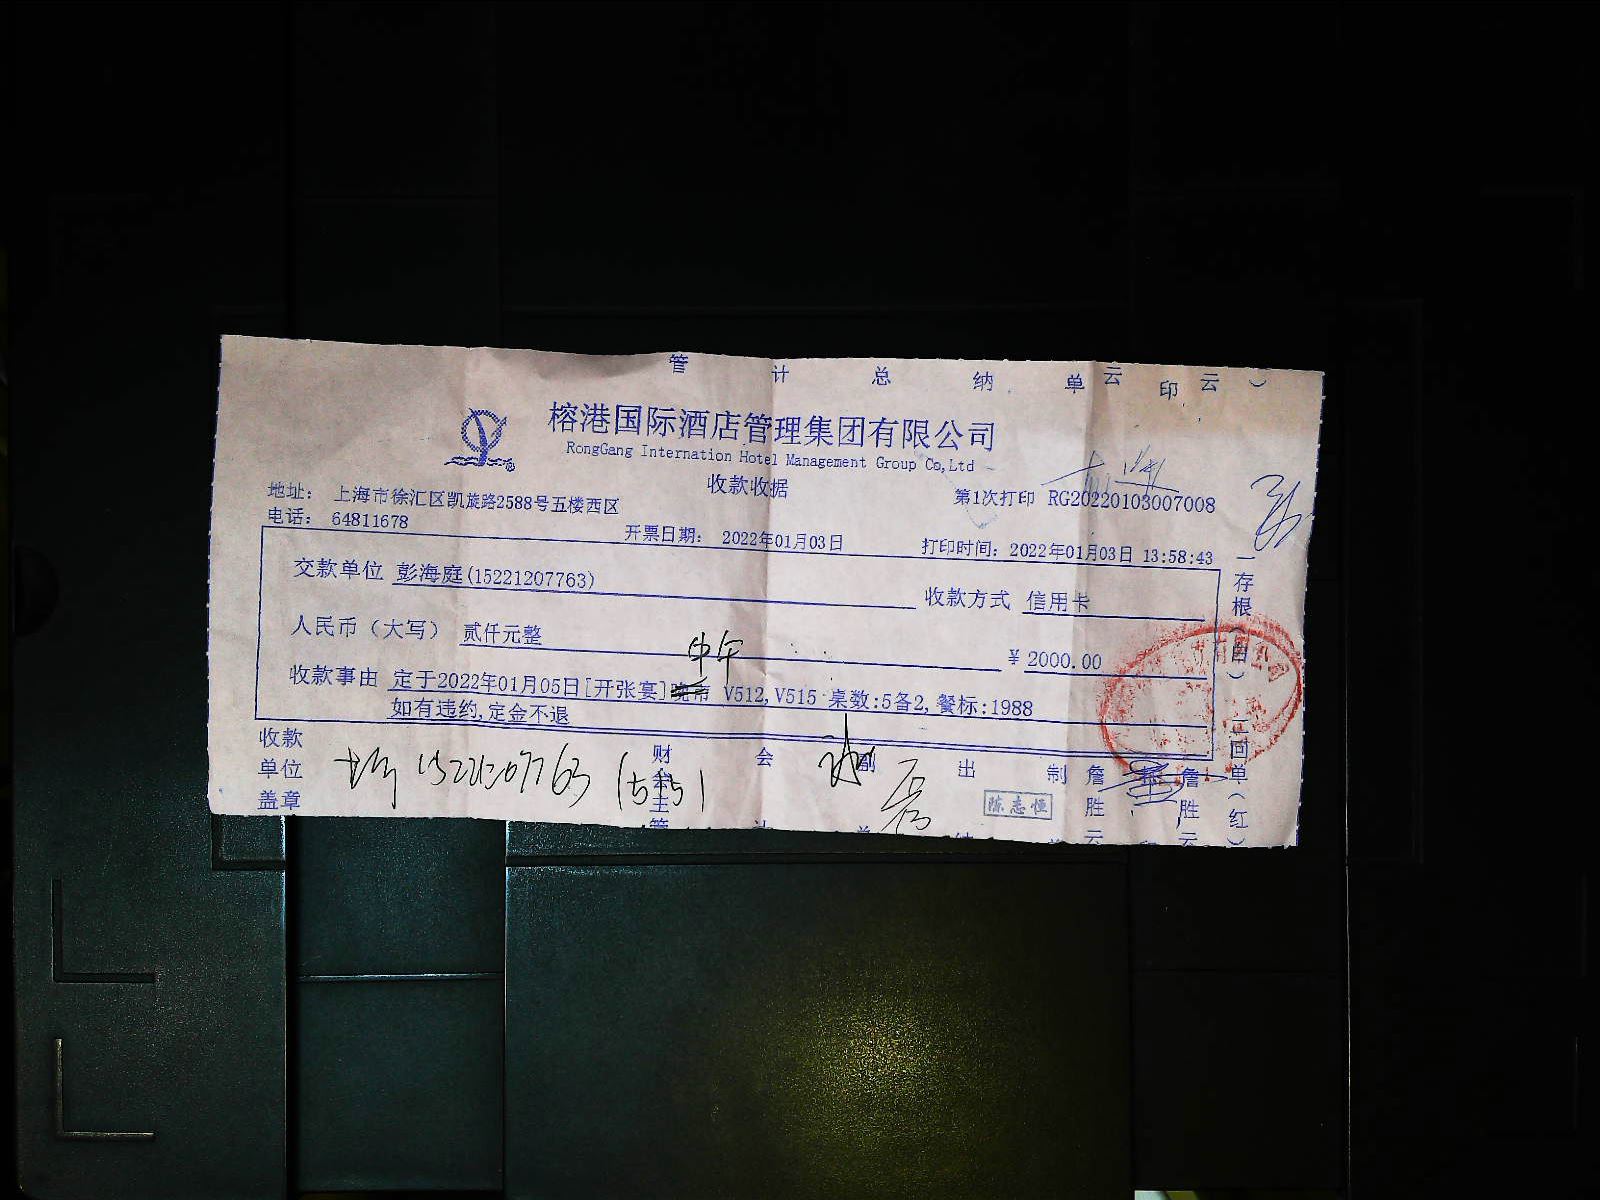 管 计 总 纳 单 云 印 云 )
榕港国际酒店管理集团有限公司
RongGang Internation Hotel Management Group Co,Ltd
收款收据
地址: 上海市徐汇区凯旋路2588号五楼西区
第1次打印 RG20220103007008
电话: 64811678
开票日期: 2022年01月03日
打印时间: 2022年01月03日 13:58:43
交款单位 彭海庭(15221207763)
收款方式 信用卡
人民币（大写） 贰仟元整
¥ 2000.00
中午
收款事由 定于2022年01月05日[开张宴]晚市 V512,V515 桌数:5各2,餐标:1988
如有违约,定金不退
一存根（白） 二回单（红）
收款单位盖章
15221207763
财会主管 会计 副总 出纳 制单 詹胜云
詹胜云
陈志恒